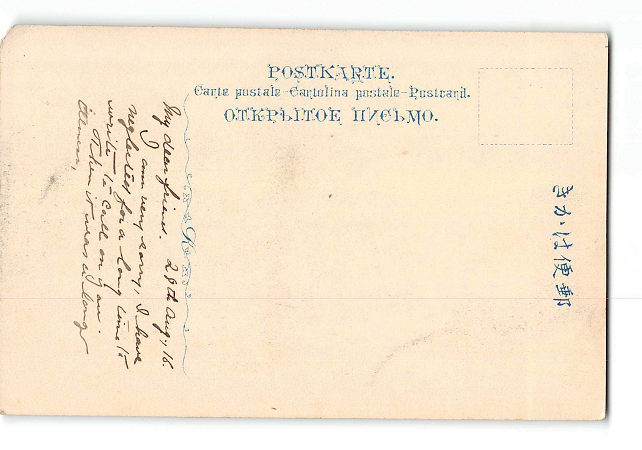 POSTKARTE.
Carte postale-Cartolina postale-Postcard.
ОТКРЫТОЕ ПИСЬМО.
郵便はかき
My dear friend. 28th Aug, 16.
I am very sorry, I have
neglected for a long time to
write to call on you.
Then it was a long